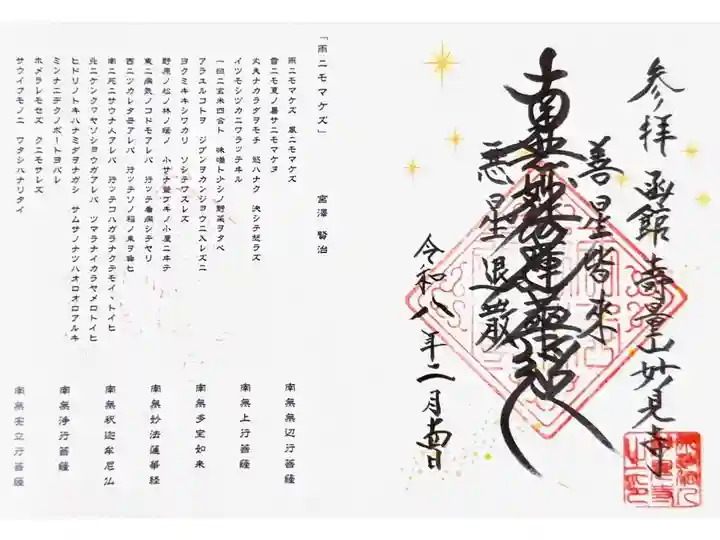 参拝 函館 壽量山妙見寺
善星皆来
南無妙法蓮華経
悪星退散
令和八年二月
「雨ニモマケズ」 宮澤 賢治
雨ニモマケズ 風ニモマケズ
雪ニモ夏ノ暑サニモマケヌ
丈夫ナカラダヲモチ 慾ハナク 決シテ怒ラズ
イツモシヅカニワラッテヰル
一日ニ玄米四合ト 味噌ト少シノ野菜ヲタベ
アラユルコトヲ ジブンヲカンジョウニ入レズニ
ヨクミキキシワカリ ソシテワスレズ
野原ノ松ノ林ノ蔭ノ 小サナ萱ブキノ小屋ニヰテ
東ニ病気ノコドモアレバ 行ッテ看病シテヤリ
西ニツカレタ母アレバ 行ッテソノ稲ノ束ヲ負ヒ
南ニ死ニサウナ人アレバ 行ッテコハガラナクテモイヽトイヒ
北ニケンクヮヤソショウガアレバ ツマラナイカラヤメロトイヒ
ヒドリノトキハナミダヲナガシ サムサノナツハオロオロアルキ
ミンナニデクノボートヨバレ
ホメラレモセズ クニモサレズ
サウイフモノニ ワタシハナリタイ
南無無辺行菩薩
南無上行菩薩
南無多宝如来
南無妙法蓮華経
南無釈迦牟尼仏
南無浄行菩薩
南無安立行菩薩